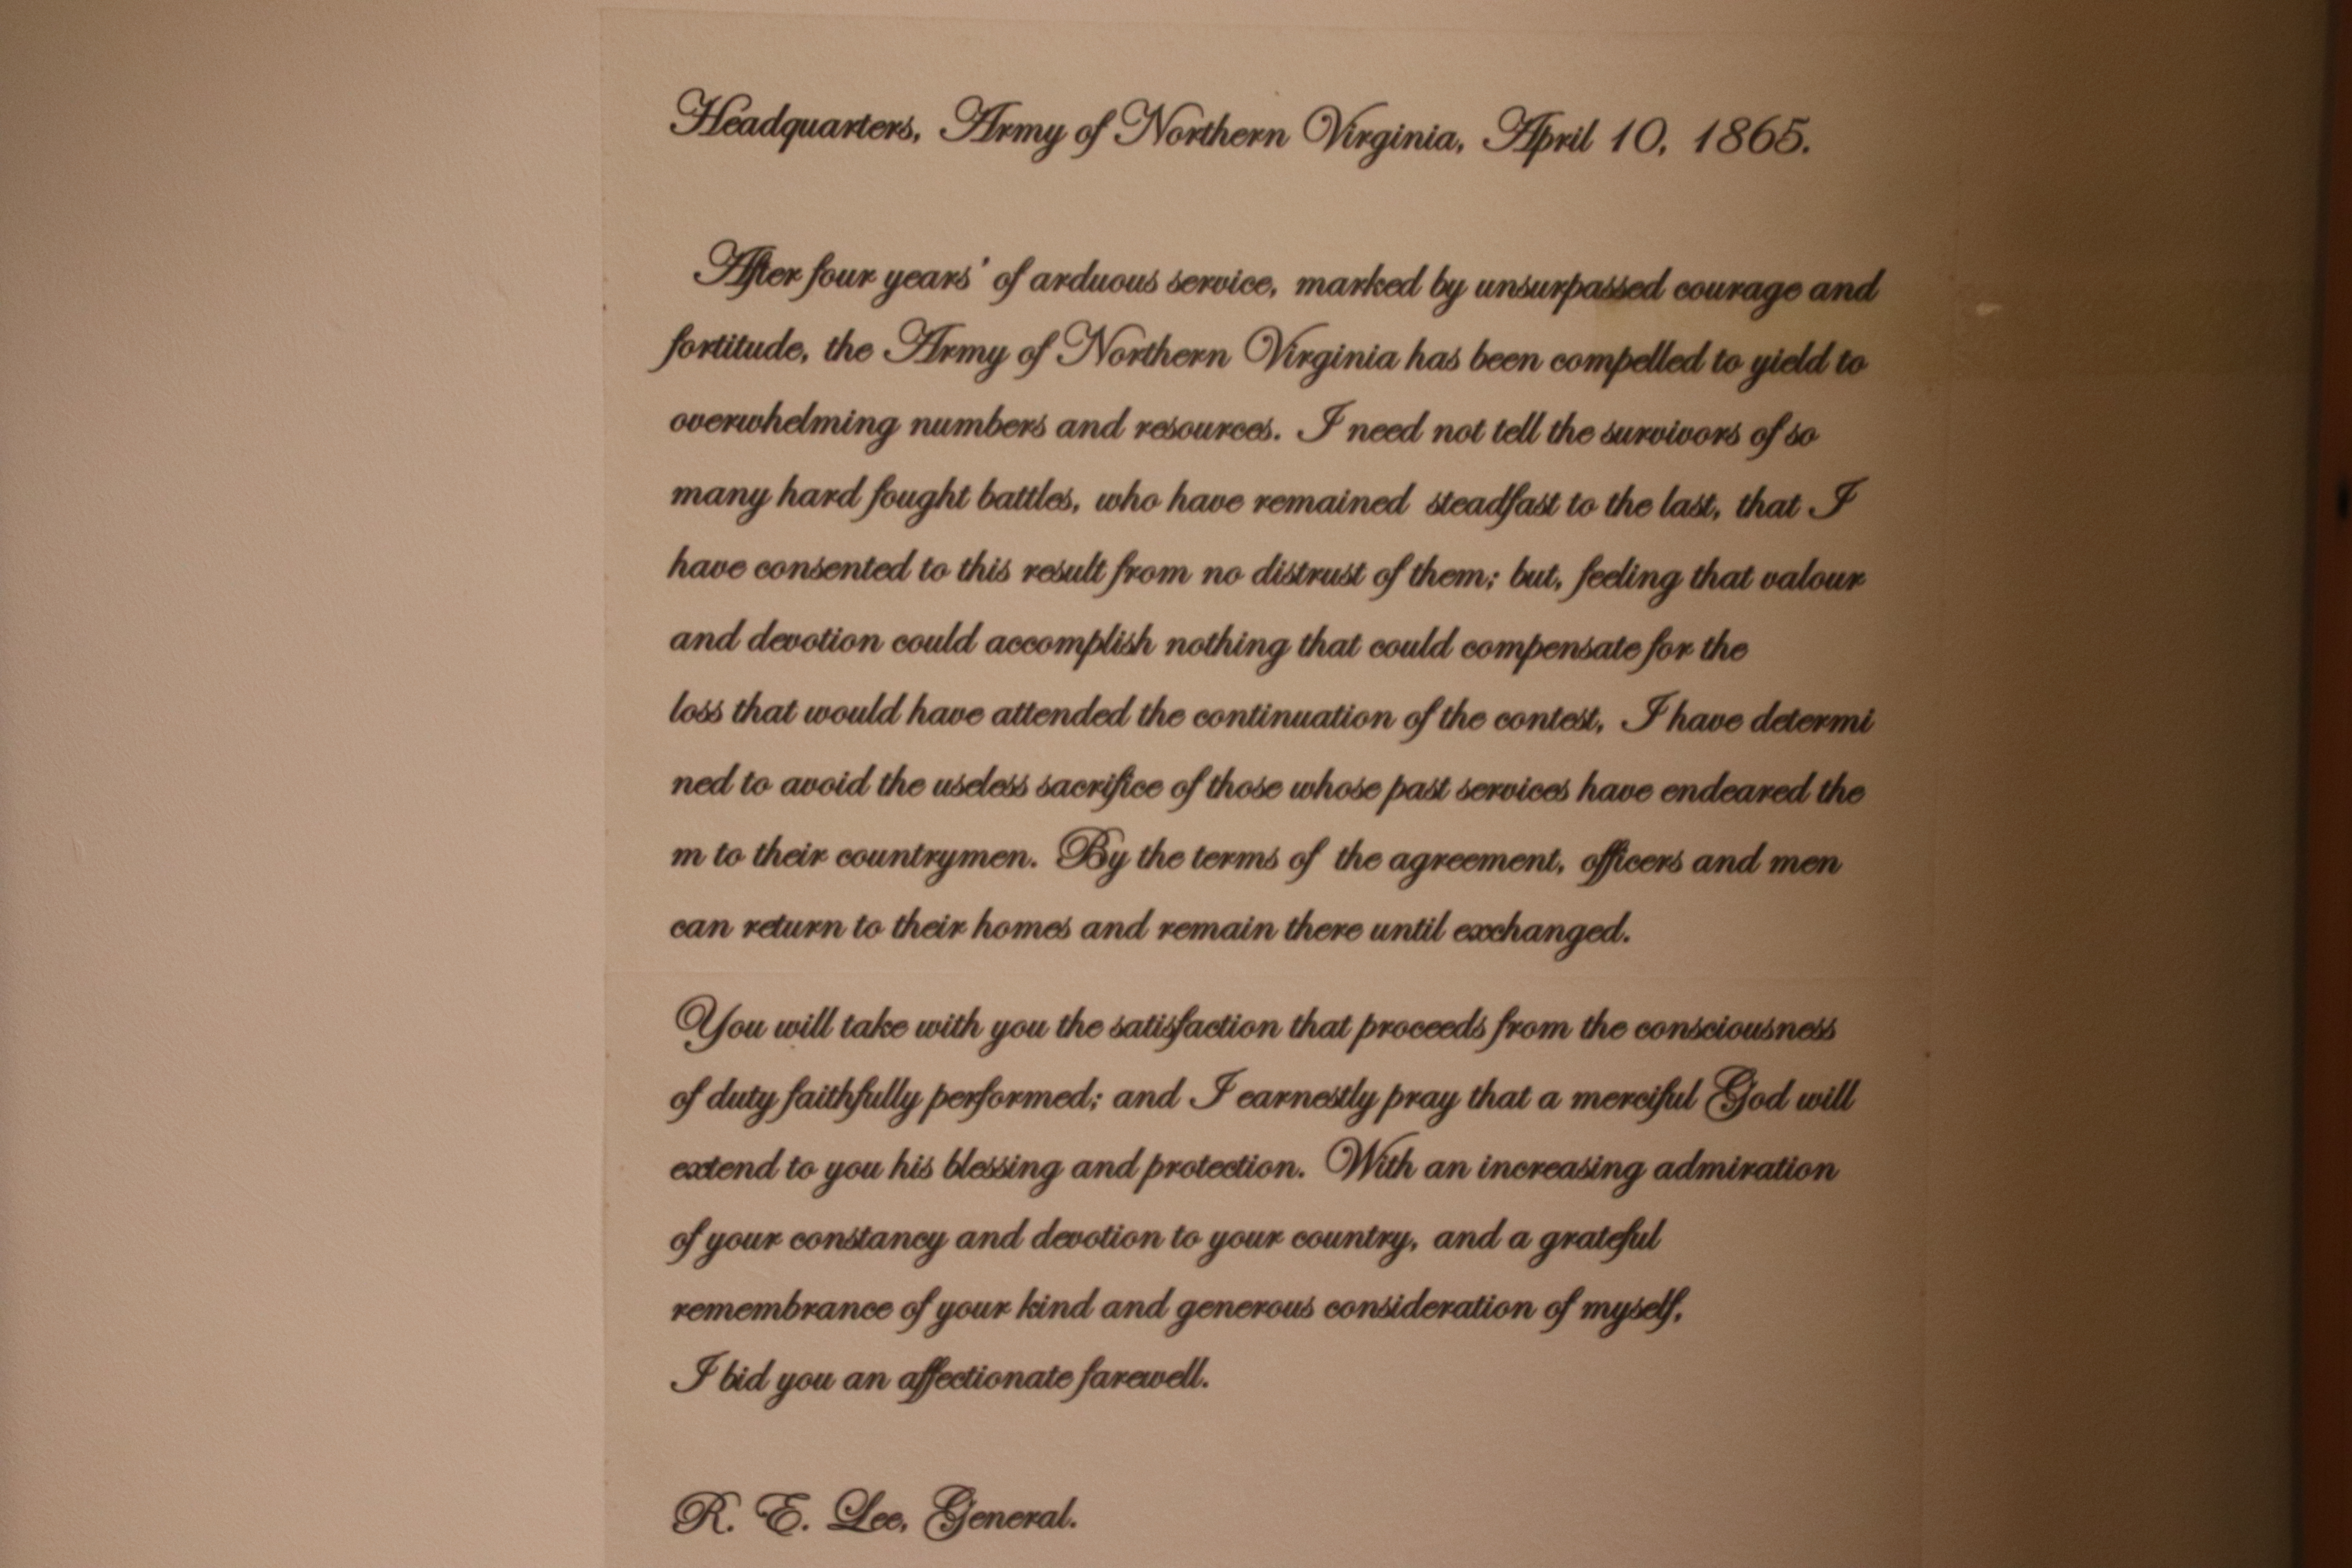 Headquarters, Army of Northern Virginia, April 10, 1865.
After four years' of arduous service, marked by unsurpassed courage and
fortitude, the Army of Northern Virginia has been compelled to yield to
overwhelming numbers and resources. I need not tell the survivors of so
many hard fought battles, who have remained steadfast to the last, that I
have consented to this result from no distrust of them; but, feeling that valour
and devotion could accomplish nothing that could compensate for the
loss that would have attended the continuation of the contest, I have determi
ned to avoid the useless sacrifice of those whose past services have endeared the
m to their countrymen. By the terms of the agreement, officers and men
can return to their homes and remain there until exchanged.
You will take with you the satisfaction that proceeds from the consciousness
of duty faithfully performed; and I earnestly pray that a merciful God will
extend to you his blessing and protection. With an increasing admiration
of your constancy and devotion to your country, and a grateful
remembrance of your kind and generous consideration of myself,
I bid you an affectionate farewell.
R. E. Lee, General.